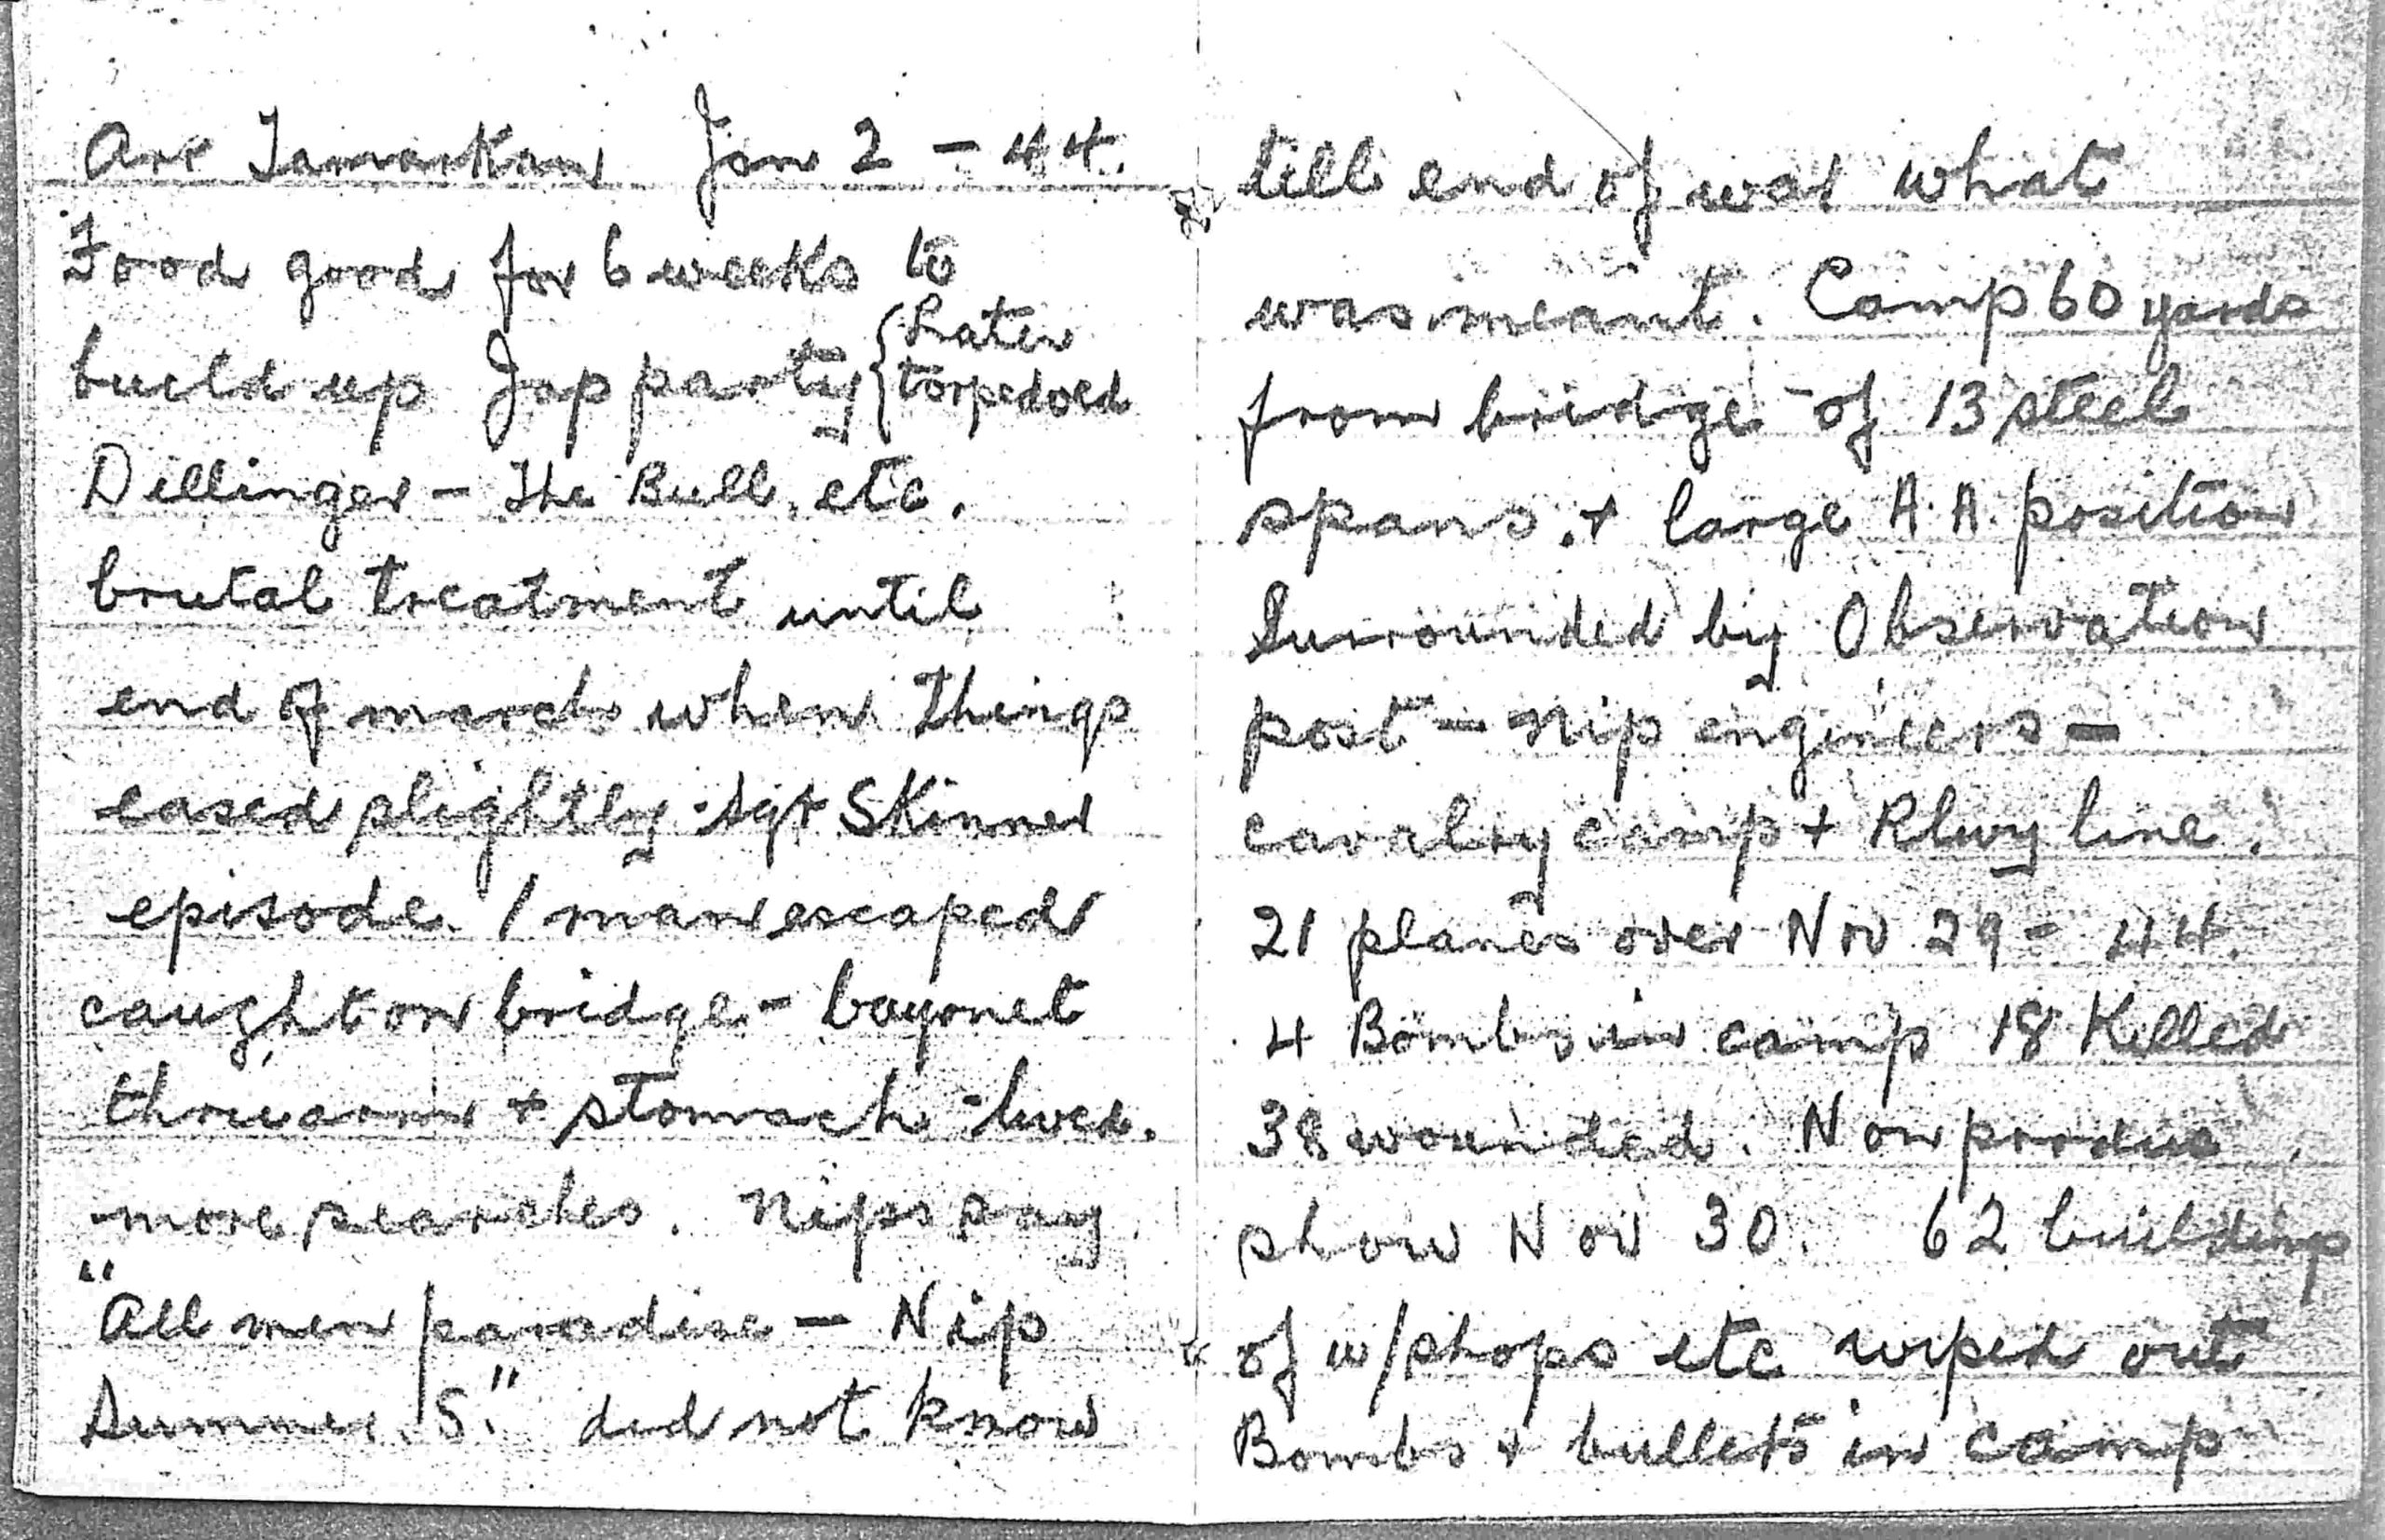 Arr Tamarkan Jan 2 - 44.
Food good for 6 weeks to
build up Jap party {Later
torpedoed
Dillinger - The Bull, etc.
brutal treatment until
end of march when things
eased slightly - Sgt Skinner
episode. 1 man escaped
caught on bridge - bayonet
thru arm + stomach - lived.
more searches. Nips say
"All men paradise - Nip
Summer S." did not know
till end of war what
was meant. Camp 60 yards
from bridge - of 13 steel
spans. + large A.A. position
Surrounded by Observation
post - Nip engineers -
cavalry camp + Rlwy line.
21 planes over Nov 29 - 44.
4 Bombs in camp 18 Killed
38 wounded. Non
show Nov 30. 62 buildings
of w/shops etc wiped out
Bombs + bullets in camp